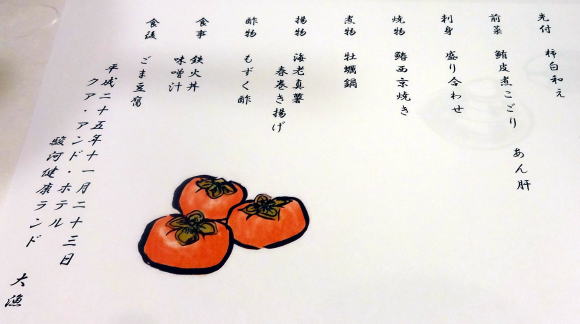 先付 柿白和え
前菜 鮪皮煮こごり あん肝
刺身 盛り合わせ
焼物 鰆西京焼き
煮物 牡蠣鍋
揚物 海老真薯
春巻き揚げ
酢物 もずく酢
食事 鉄火丼
味噌汁
食後 ごま豆腐
平成二十五年十一月二十三日
クア・アンド・ホテル
駿河健康ランド
大漁